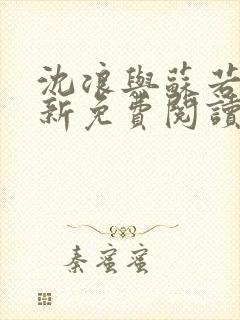 沈浪與蘇若
新免費閱讀
秦蜜蜜